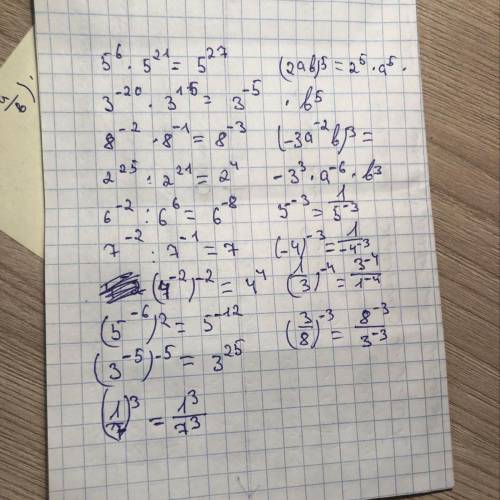 5⁶ · 5²¹ = 5²⁷
3⁻²⁰ · 3¹⁵ = 3⁻⁵
8⁻² · 8⁻¹ = 8⁻³
2²⁵ : 2²¹ = 2⁴
6⁻² : 6⁶ = 6⁻⁸
7⁻² : 7⁻¹ = 7
(4⁻²)⁻² = 4⁴
(5⁻⁶)² = 5⁻¹²
(3⁻⁵)⁻⁵ = 3²⁵
(1/7)³ = 1³/7³
(2ab)⁵ = 2⁵ · a⁵ ·
· b⁵
(-3a⁻²b)³ =
-3³ · a⁻⁶ · b³
5⁻³ = 1/5⁻³
(-4)⁻³ = 1/-4⁻³
(1/3)⁻⁴ = 3⁻⁴/1⁻⁴
(3/8)⁻³ = 8⁻³/3⁻³